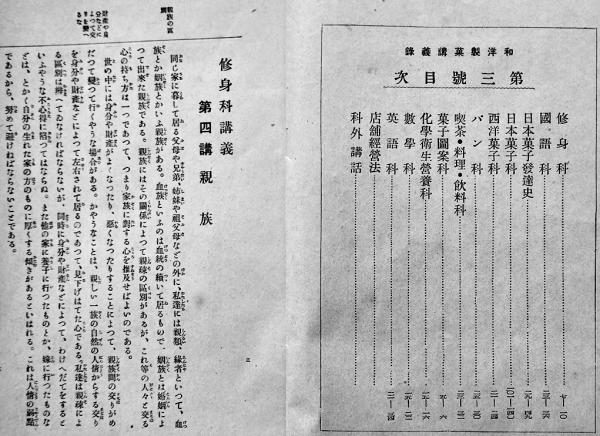 和洋製菓講義錄
第三號目次
修身科
國語科
日本菓子發達史
日本菓子科
西洋菓子科
パン科
喫茶・料理・飮料科
菓子圖案科
化學衞生營養科
數學科
英語科
店舖經營法
科外講話
修身科講義
第四講 親族
同じ家に暮して居る父母や兄弟、姉妹や祖父母などの外に、私達には親類、緣者といつて、血
族とか姻族とかいふ親族がある。血族といふのは血統の續いて居るもので、姻族とは婚姻によ
つて出來た親族である。親族にはその關係によつて親疎の區別があるが、これ等の人々と交る
心の持ち方は一つであつて、つまり家族に對する心を推及せばよいのである。
世の中には身分や財產がよくなつたり、惡くなつたりすることによつて、親族間の交りがめ
だつて變つて行くやうな場合がある。かやうなことは、親しい一族の自然の人情からする交り
を身分や財產などによつて左右されて居るのであつて、見下げはてた心である。私達は親疎によ
る區別は辨へてゐなければならないが、同時に身分や財產などによつて、わけへだてをすると
いふやうな不心得に陷つてはならぬ。また他の家に養子に行つたものとか、嫁に行つたものな
どは、とかく自分の生れた家の方のものに厚くする傾きがあるといはれる。これは人情の弱點
であるから、努めて避けねばならないことである。
親族の區別
財產や身分などによつて交りを變へるな